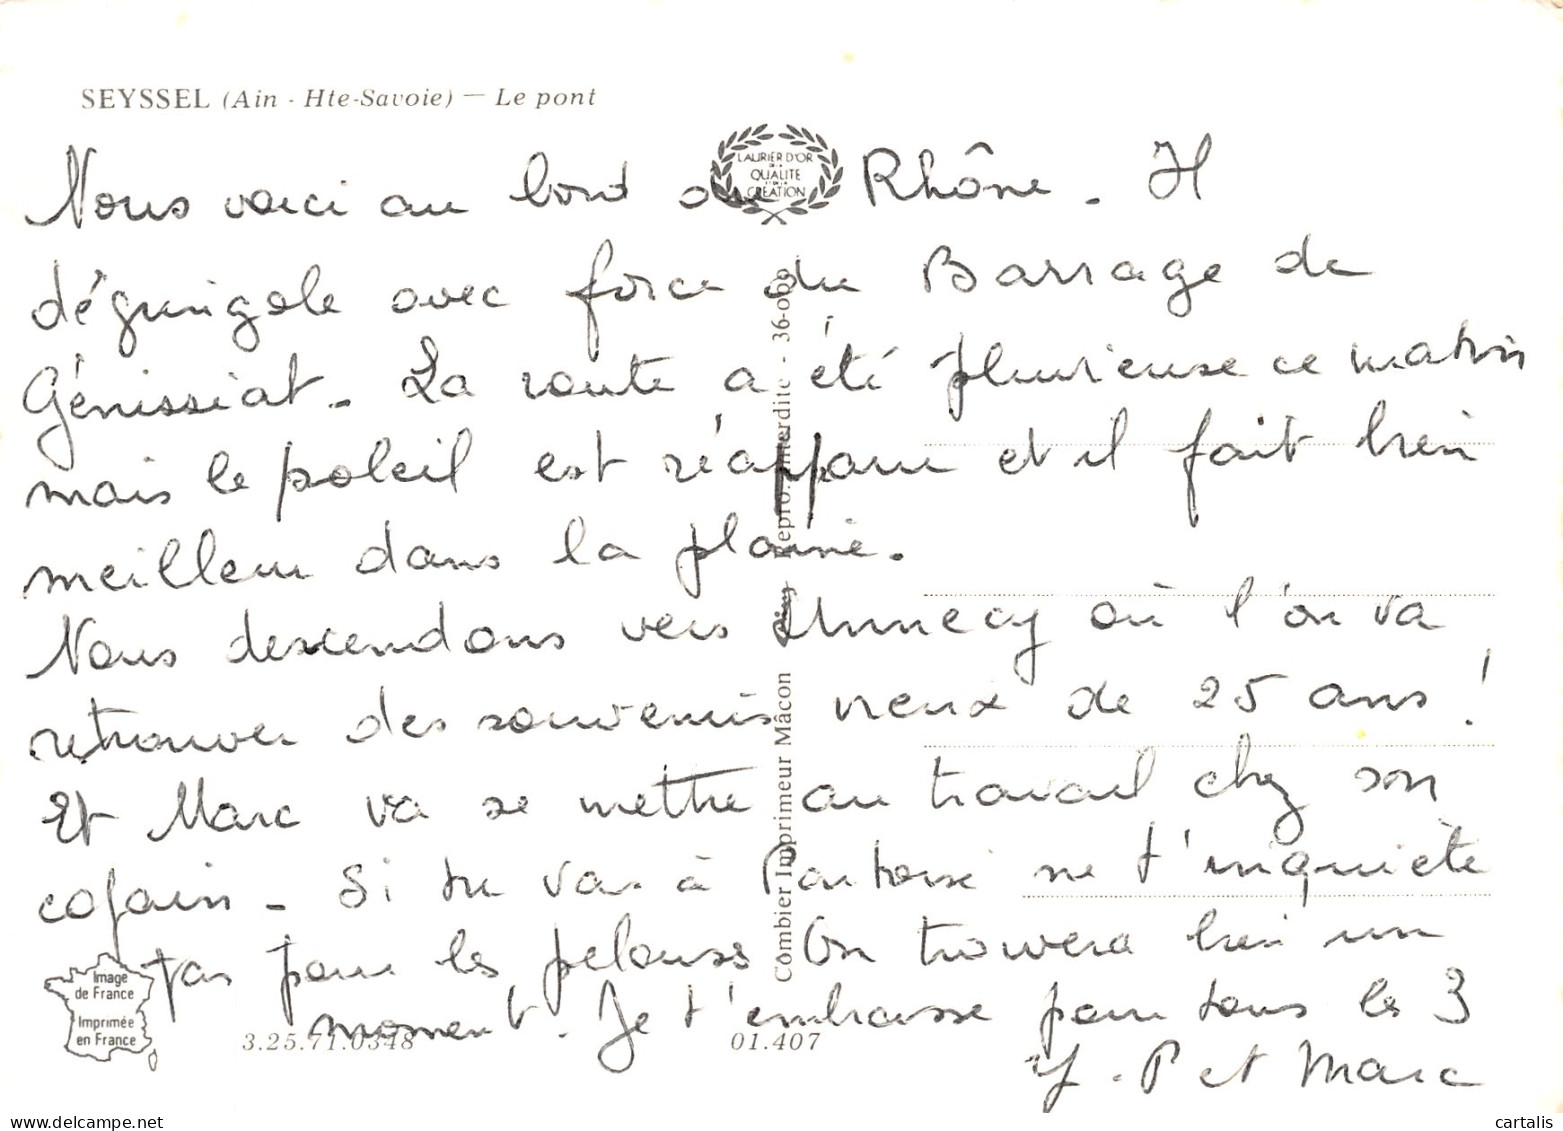 SEYSSEL (Ain - Hte-Savoie) — Le pont
LAURIER D'OR
DE LA
QUALITE
ET DE LA
CREATION
Nous voici au bord du Rhône. Il
dégringole avec force du Barrage de
Génissiat. La route a été pluvieuse ce matin
mais le soleil est réapparu et il fait bien
meilleur dans la plaine.
Nous descendons vers Annecy où l'on va
retrouver des souvenirs vieux de 25 ans !
Et Marc va se mettre au travail chez son
copain. Si tu vas à Pontoise ne t'inquiète
pas pour les pelouses On trouvera bien un
moment. Je t'embrasse pour tous les 3
J. P et Marc
Combier Imprimeur Mâcon
Repro. interdite - 36-009
Image
de France
Imprimée
en France
3.25.71.0348
01.407
www.delcampe.net
cartalis